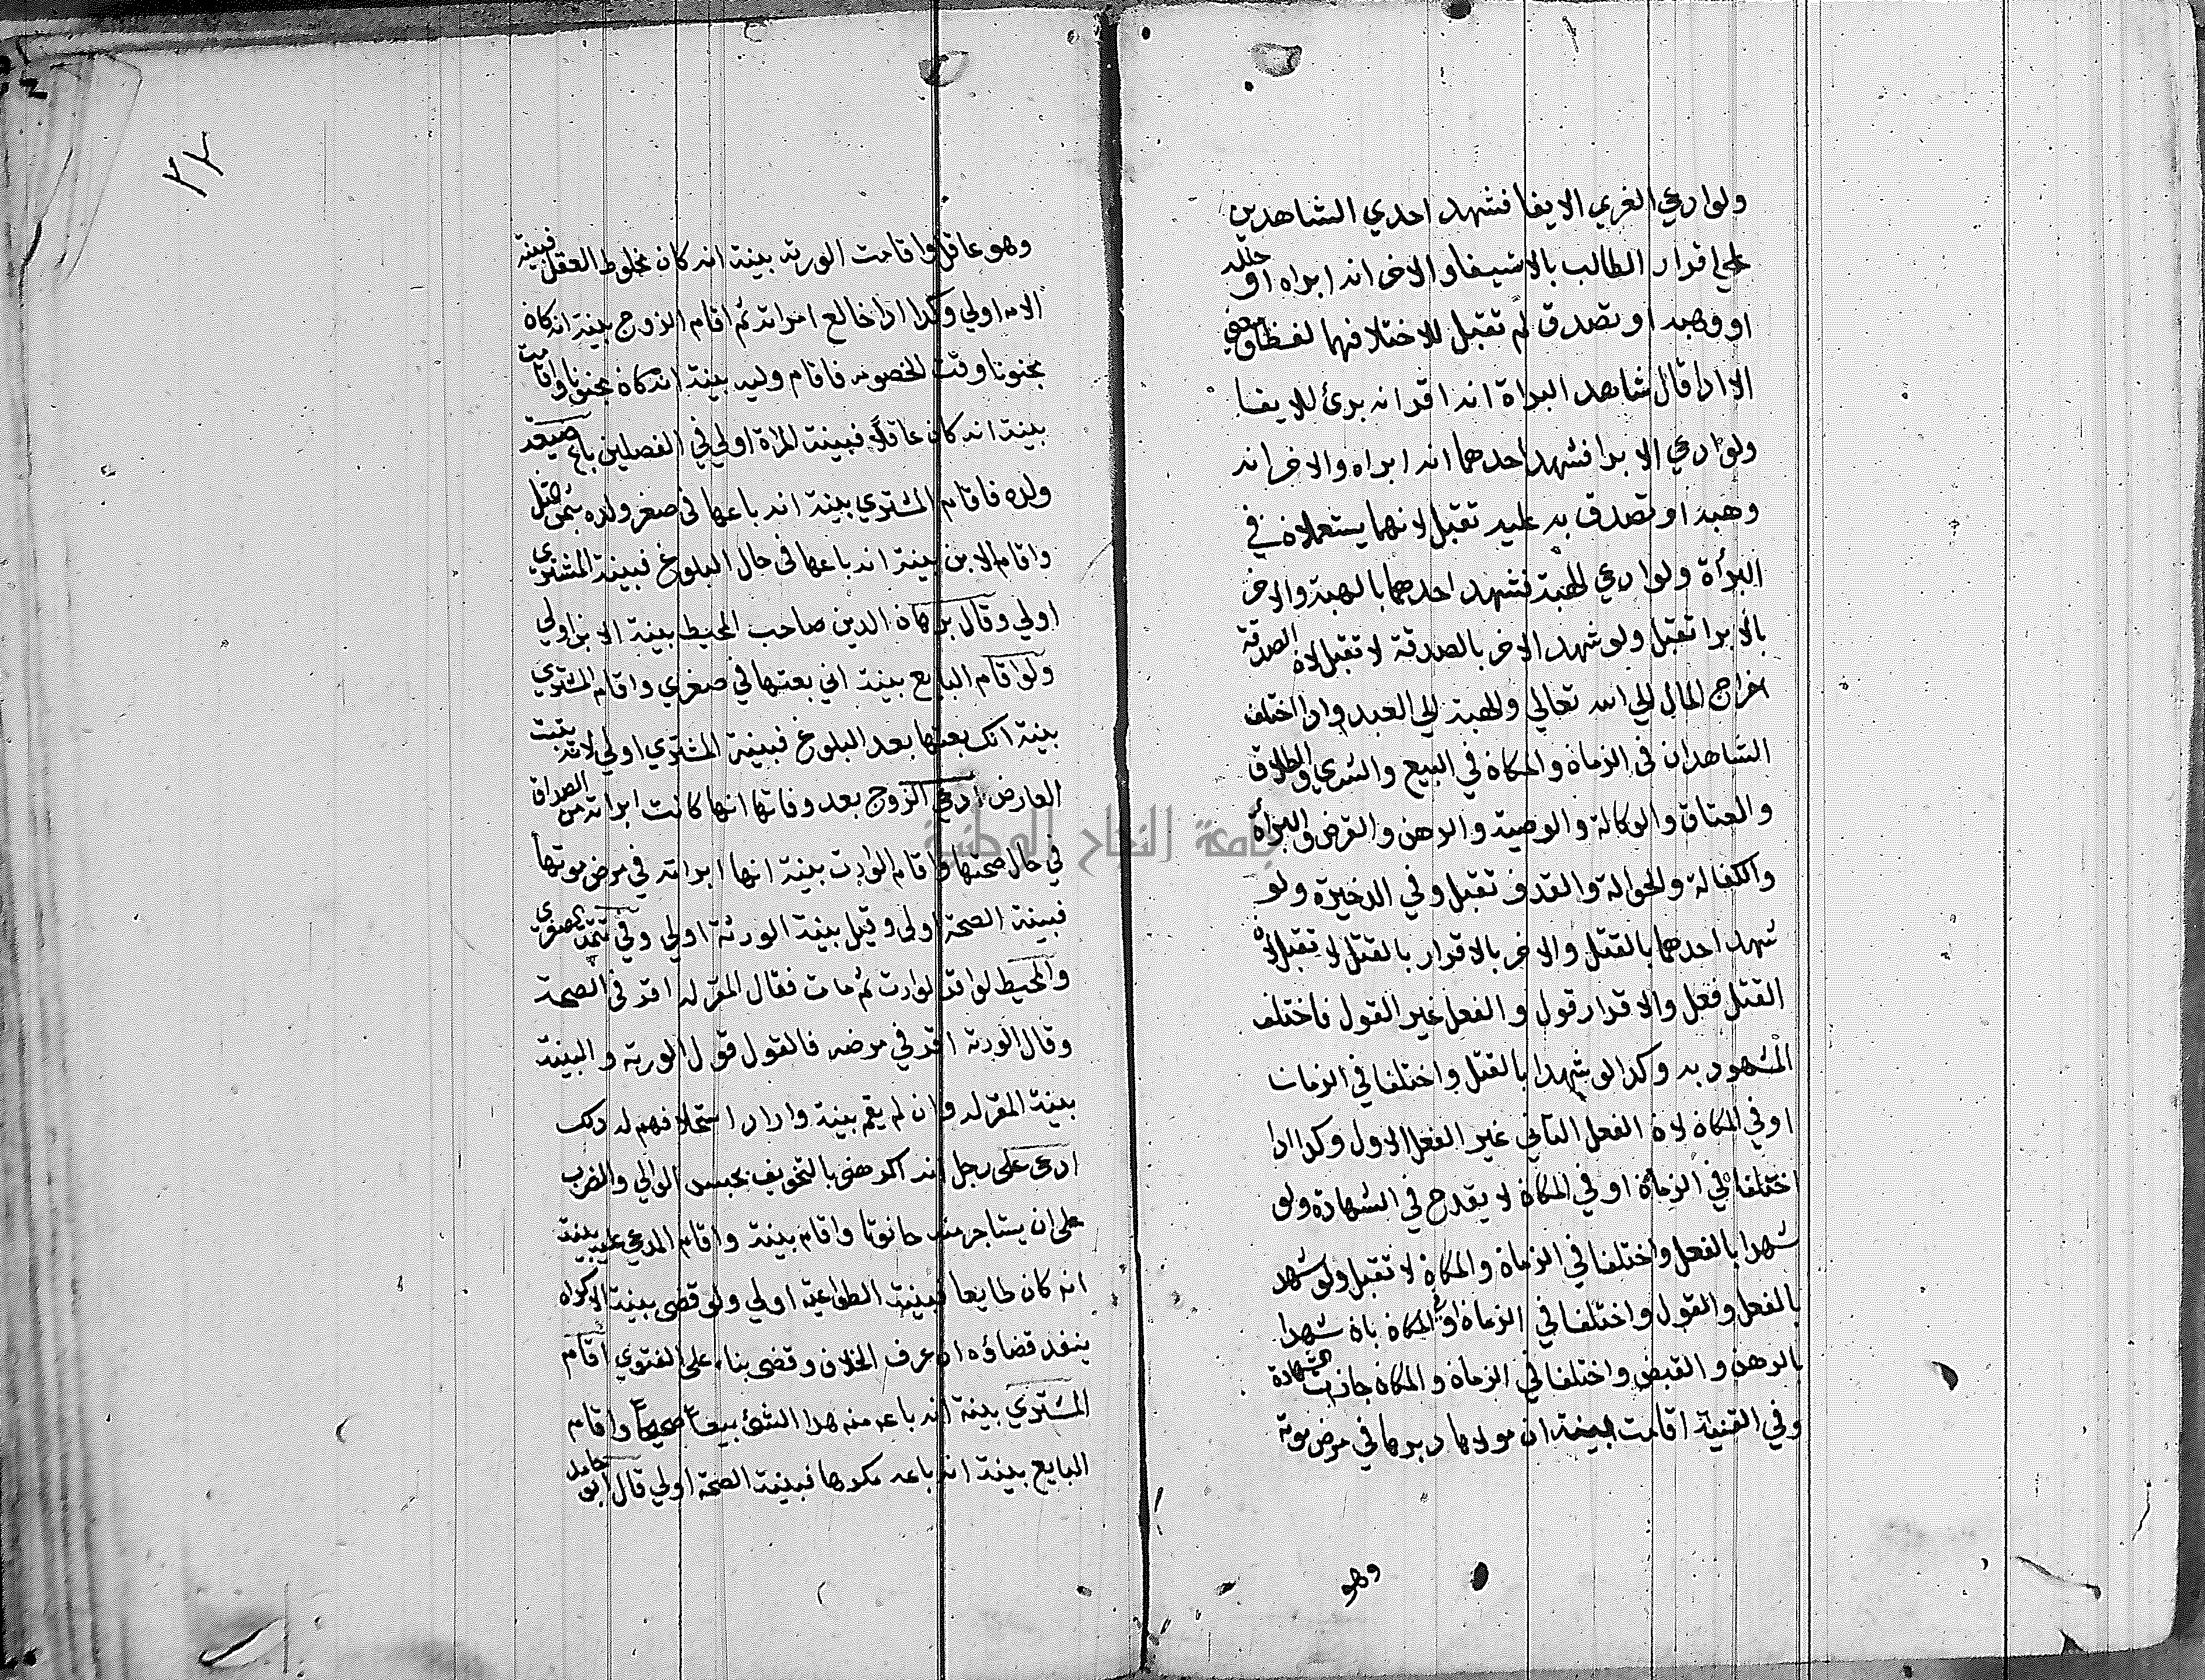 ولو ادعي الغريم الايفا فشهد احدي الشاهدين
علي اقرار الطالب بالاستيفا والاخر انه ابراه او حلله
او وهبه او تصدق لم تقبل للاختلافهما لفظا ومعني
الا اذا قال شاهد البراة انه اقر انه برئ للايفا
ولو ادعي الابرا فشهد احدهما انه ابراه والاخر انه
وهبه او تصدق به عليه تقبل لانهما يستعملان في
البرأة ولو ادعي الهبة فشهد احدهما بالهبة والاخر
بالابرا تقبل ولو شهد الاخر بالصدقة لا تقبل لان الصدقة
اخراج المال الي الله تعالي والهبة الي العبد واذا اختلف
الشاهدان في الزمان والمكان في البيع والشري والطلاق
والعتاق والوكالة والوصية والرهن والقرض والبرأة
والكفالة والحوالة والقذف تقبل وفي الدخيرة ولو
شهد احدهما بالقتل والاخر بالاقرار بالقتل لا تقبل لان
القتل فعل والاقرار قول والفعل غير القول فاختلف
المشهود به وكذا لو شهدا بالقتل واختلفا في الزمان
او في المكان لان الفعل الثاني غير الفعل الاول وكذا اذا
اختلفا في الزمان او في المكان لا يقدح في الشهادة ولو
شهدا بالفعل واختلفا في الزمان والمكان لا تقبل ولو شهد
بالفعل والقول واختلفا في الزمان والمكان بان شهدا
بالرهن والقبض واختلفا في الزمان والمكان جازت الشهادة
وفي القنية اقامت بينة ان مولاها دبرها في مرض موته
وهو
٢٢
وهو عاقل واقامت الورثة بينة انه كان مخلوط العقل فبينة
الامه اولي وكذا اذا خالع امراته ثم اقام الزوج بينة انه كان
مجنونا وقت الخصومه فاقام وليه بينة انه كان مجنونا واقامت
بينة انه كان عاقلا فبينة المرأة اولي في الفصلين باع ضيعة
ولده فاقام المشتري بينة انه باعها في صغر ولده بثمن مثل
واقام الابن بينة انه باعها في حال البلوغ فبينة المشتري
اولي وقال برهان الدين صاحب المحيط بينة الابن اولي
ولو اقام البايع بينة اني بعتها في صغري واقام المشتري
بينة انك بعتها بعد البلوغ فبينة المشتري اولي لانه يثبت
العارض ادعي الزوج بعد وفاتها انها كانت ابراته من الصداق
في حال صحتها واقام الوارث بينة انها ابراته في مرض موتها
فبينة الصحة اولي وقيل بينة الورثة اولي وفي
والمحيط لو اقر لوارث ثم مات فقال المقر له اقر في الصحة
وقال الورثة اقر في مرضه فالقول قول الورثة والبينة
بينة المقر له وان لم يقم بينة واراد استحلافهم له ذلك
ادعي علي رجل انه اكرهني بالتخويف بحبس الوالي والضرب
علي ان يستاجر منه حانوتا واقام بينة واقام المدعي عليه بينة
انه كان طايعا فبينة الطواعية اولي ولو قضي ببينة الاكراه
ينفذ قضاؤه ان عرف الخلاف وقضي بناء علي الفتوي اقام
المشتري بينة انه باعه منه هذا الشئ بيعا صحيحا واقام
البايع بينة انه باعه مكرها فبينة الصحة اولي قال ابو حامد
جامعة النجاح الوطنية